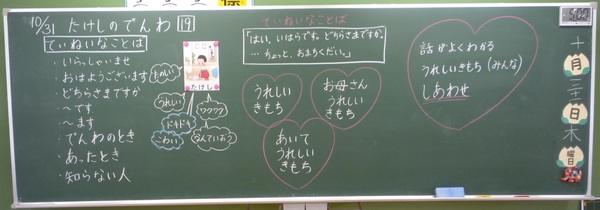 10/31 たけしのでんわ 19
ていねいなことば
・いらっしゃいませ
・おはようございます
・どちらさまですか
・〜です
・〜ます
・でんわのとき
・あったとき
・知らない人
たけし
うれしい
ワクワク
ドキドキ
こわい
なんていおう
ていねいなことば
「はい、いはらです。どちらさまですか。
…ちょっと、おまちください。」
うれしい
きもち
お母さん
うれしい
きもち
あいて
うれしい
きもち
話がよくわかる
うれしいきもち(みんな)
しあわせ
十
月
三十一
日
木
曜日